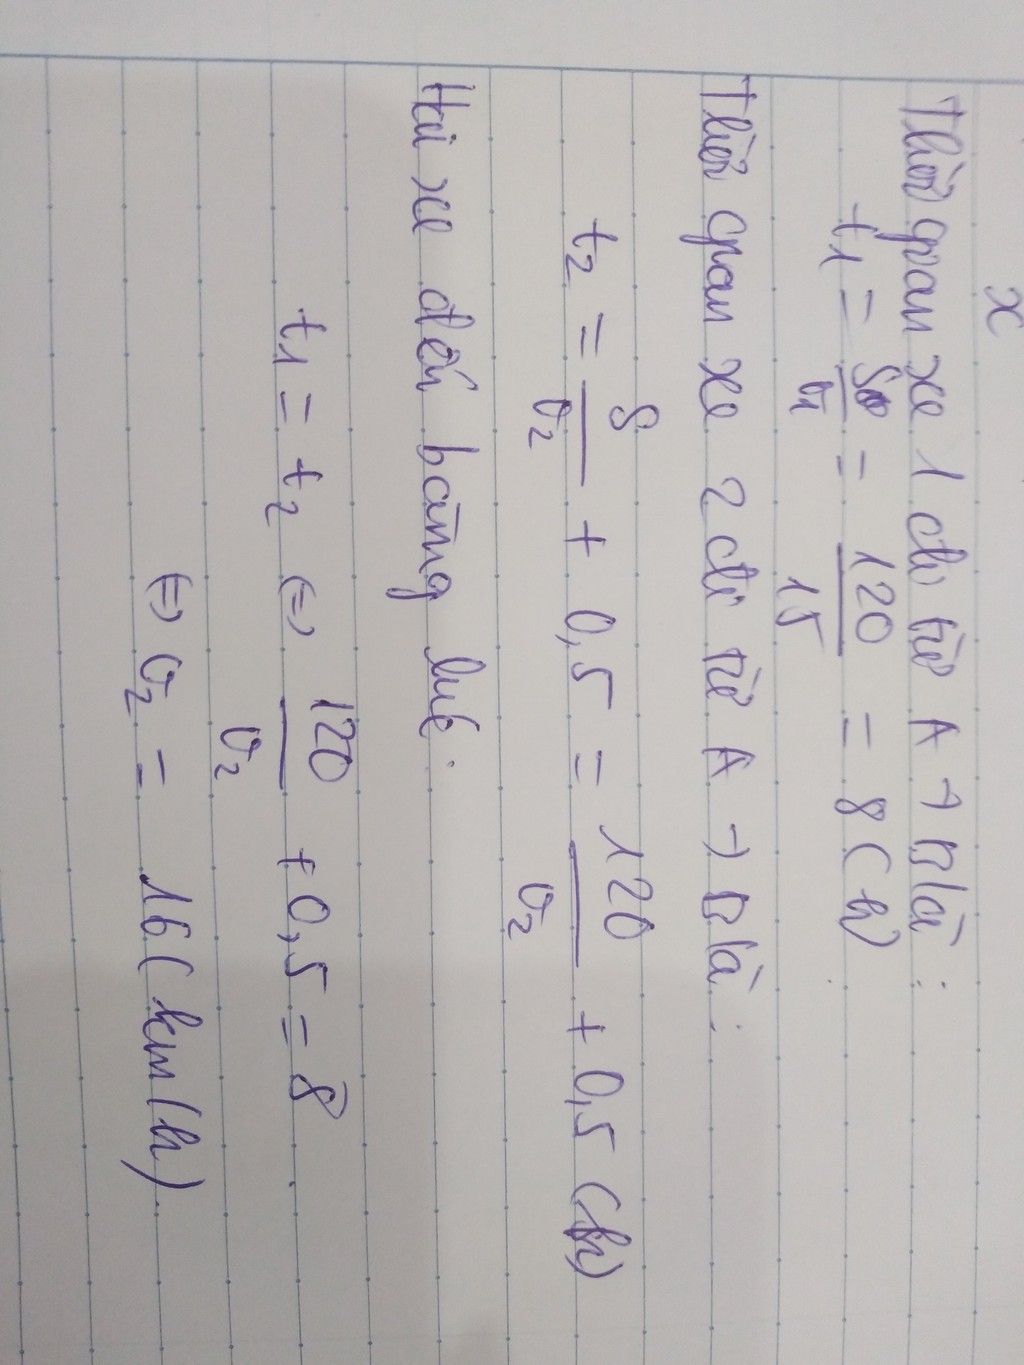 x
Thời gian xe 1 đi từ A → B là :
t₁ = S/v₁ = 120/15 = 8 (h)
Thời gian xe 2 đi từ A → B là :
t₂ = S/v₂ + 0,5 = 120/v₂ + 0,5 (h)
Hai xe đến bằng lúc :
t₁ = t₂ (=) 120/v₂ + 0,5 = 8
(=) v₂ = 16 (km/h)